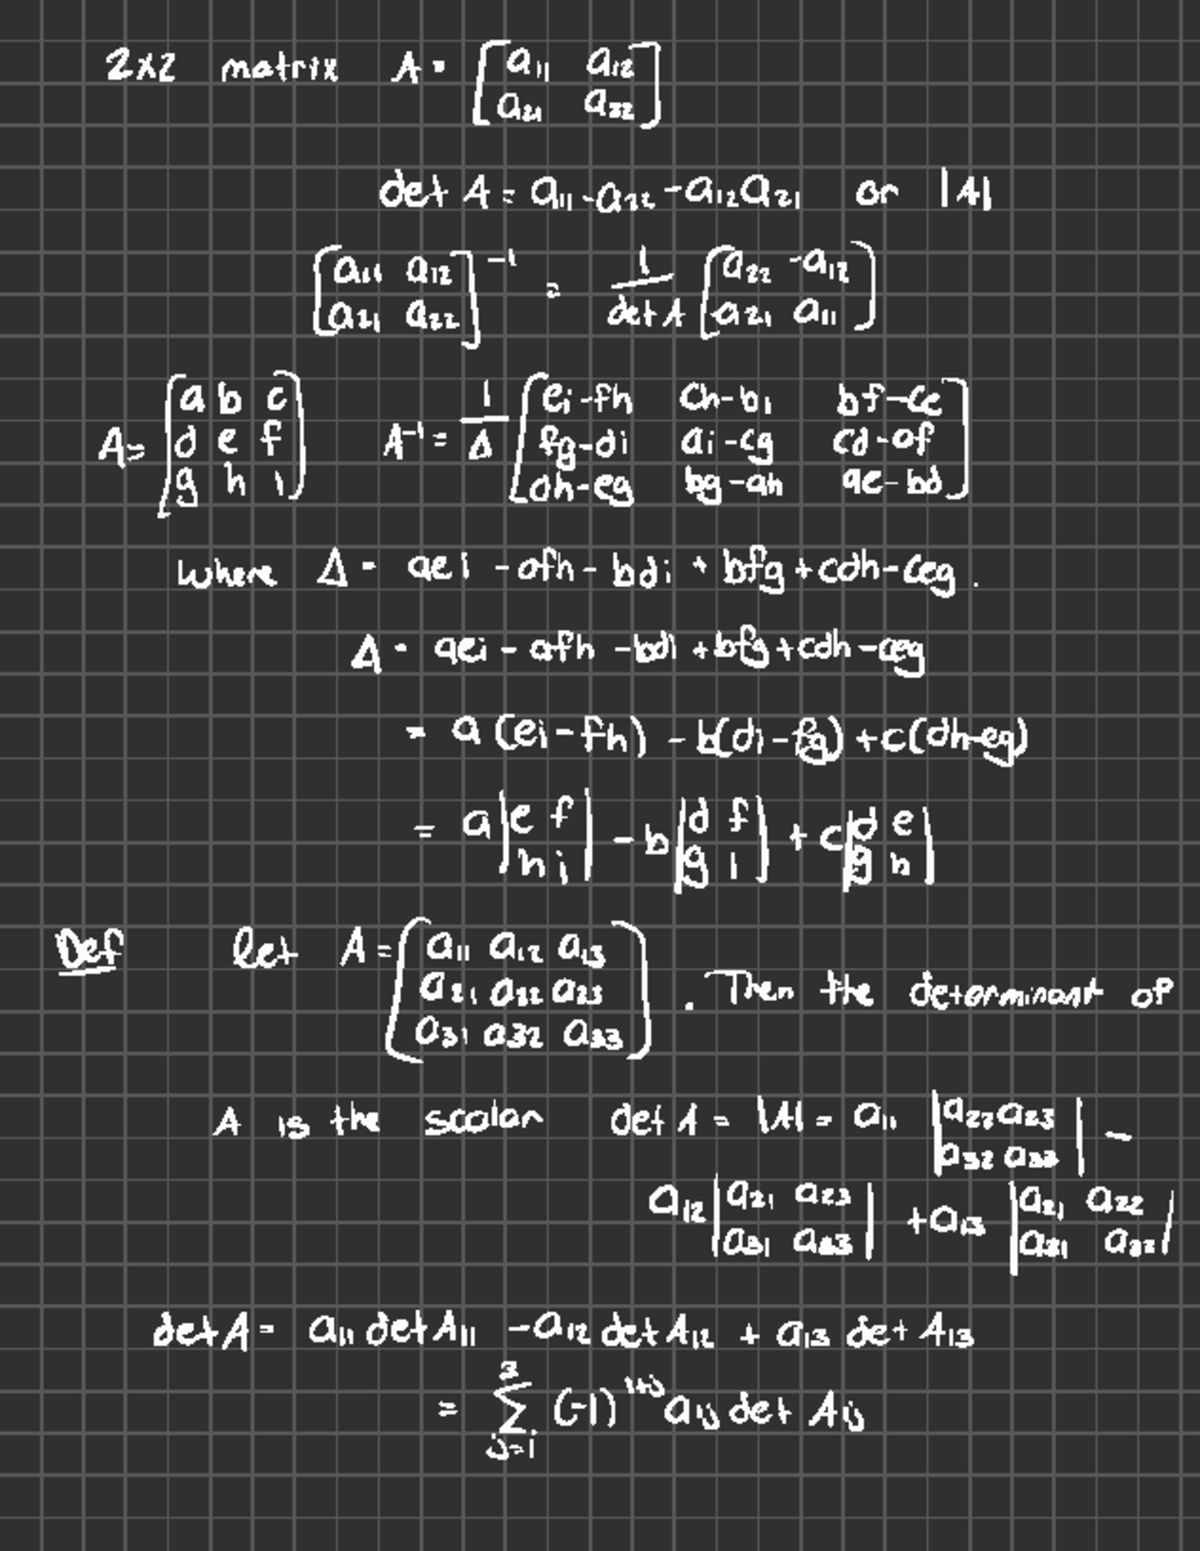 2x2 matrix A = [a₁₁ a₁₂
a₂₁ a₂₂]
det A = a₁₁-a₂₂-a₁₂a₂₁ or |A|
[a₁₁ a₁₂
a₂₁ a₂₂]⁻¹ = 1/det A [a₂₂ -a₁₂
a₂₁ a₁₁]
A = [a b c
d e f
g h i]
A⁻¹ = 1/Δ [ei-fh ch-bi bf-ce
fg-di ai-cg cd-af
dh-eg bg-ah ae-bd]
where Δ = aei - afh - bdi + bfg + cdh - ceg.
Δ = aei - afh - bdi + bfg + cdh - ceg
= a (ei-fh) - b(di-fg) + c(dh-eg)
= a|e f
h i| - b|d f
g i| + c|d e
g h|
Def let A = [a₁₁ a₁₂ a₁₃
a₂₁ a₂₂ a₂₃
a₃₁ a₃₂ a₃₃]. Then the determinant of
A is the scalar det A = |A| = a₁₁ |a₂₂ a₂₃
a₃₂ a₃₃| -
a₁₂ |a₂₁ a₂₃
a₃₁ a₃₃| + a₁₃ |a₂₁ a₂₂
a₃₁ a₃₂|
det A = a₁₁ det A₁₁ - a₁₂ det A₁₂ + a₁₃ det A₁₃
= ∑³ⱼ₌₁ (-1)¹⁺ʲ a₁ⱼ det A₁ⱼ